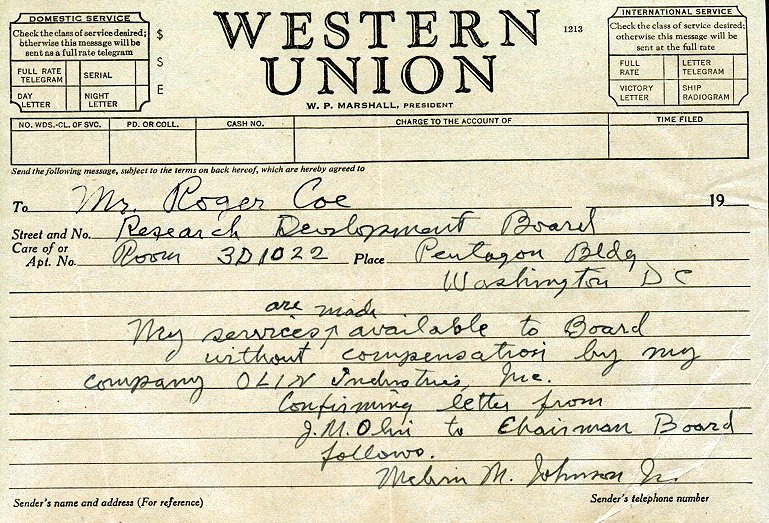 DOMESTIC SERVICE
Check the class of service desired;
otherwise this message will be
sent as a full rate telegram
FULL RATE TELEGRAM SERIAL
DAY LETTER NIGHT LETTER
$
S
E
WESTERN
UNION
1213
W. P. MARSHALL, PRESIDENT
INTERNATIONAL SERVICE
Check the class of service desired;
otherwise this message will be
sent at the full rate
FULL RATE LETTER TELEGRAM
VICTORY LETTER SHIP RADIOGRAM
NO. WDS.-CL. OF SVC. PD. OR COLL. CASH NO. CHARGE TO THE ACCOUNT OF TIME FILED
Send the following message, subject to the terms on back hereof, which are hereby agreed to
To Mr. Roger Coe 19
Street and No. Research Development Board
Care of or Apt. No. Room 3D1022 Place Pentagon Bldg
Washington DC
are made
My services available to Board
without compensation by my
company OLIN Industries, Inc.
Confirming letter from
J.M. Olin to Chairman Board
follows.
Melvin M. Johnson Jr.
Sender's name and address (For reference) Sender's telephone number